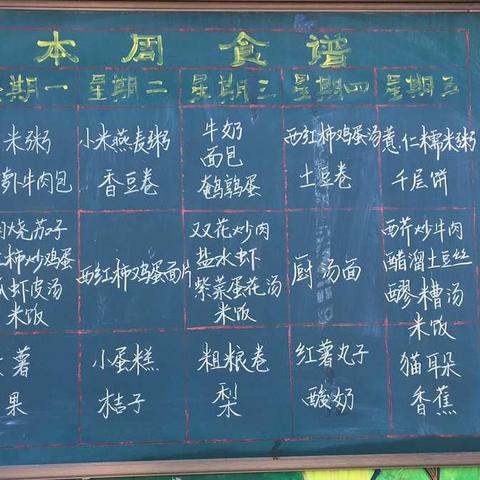 本周食谱
期一 星期二 星期三 星期四 星期五
米粥 小米燕麦粥 牛奶 西红柿鸡蛋汤 薏仁糯米粥
牛肉包 香豆卷 面包 土豆卷 千层饼
鹌鹑蛋
烧茄子 西红柿鸡蛋面片 双花炒肉 厨汤面 西芹炒牛肉
柿炒鸡蛋 盐水虾 醋溜土豆丝
虾皮汤 紫菜蛋花汤 醪糟汤
米饭 米饭 米饭
薯 小蛋糕 粗粮卷 红薯丸子 猫耳朵
果 桔子 梨 酸奶 香蕉